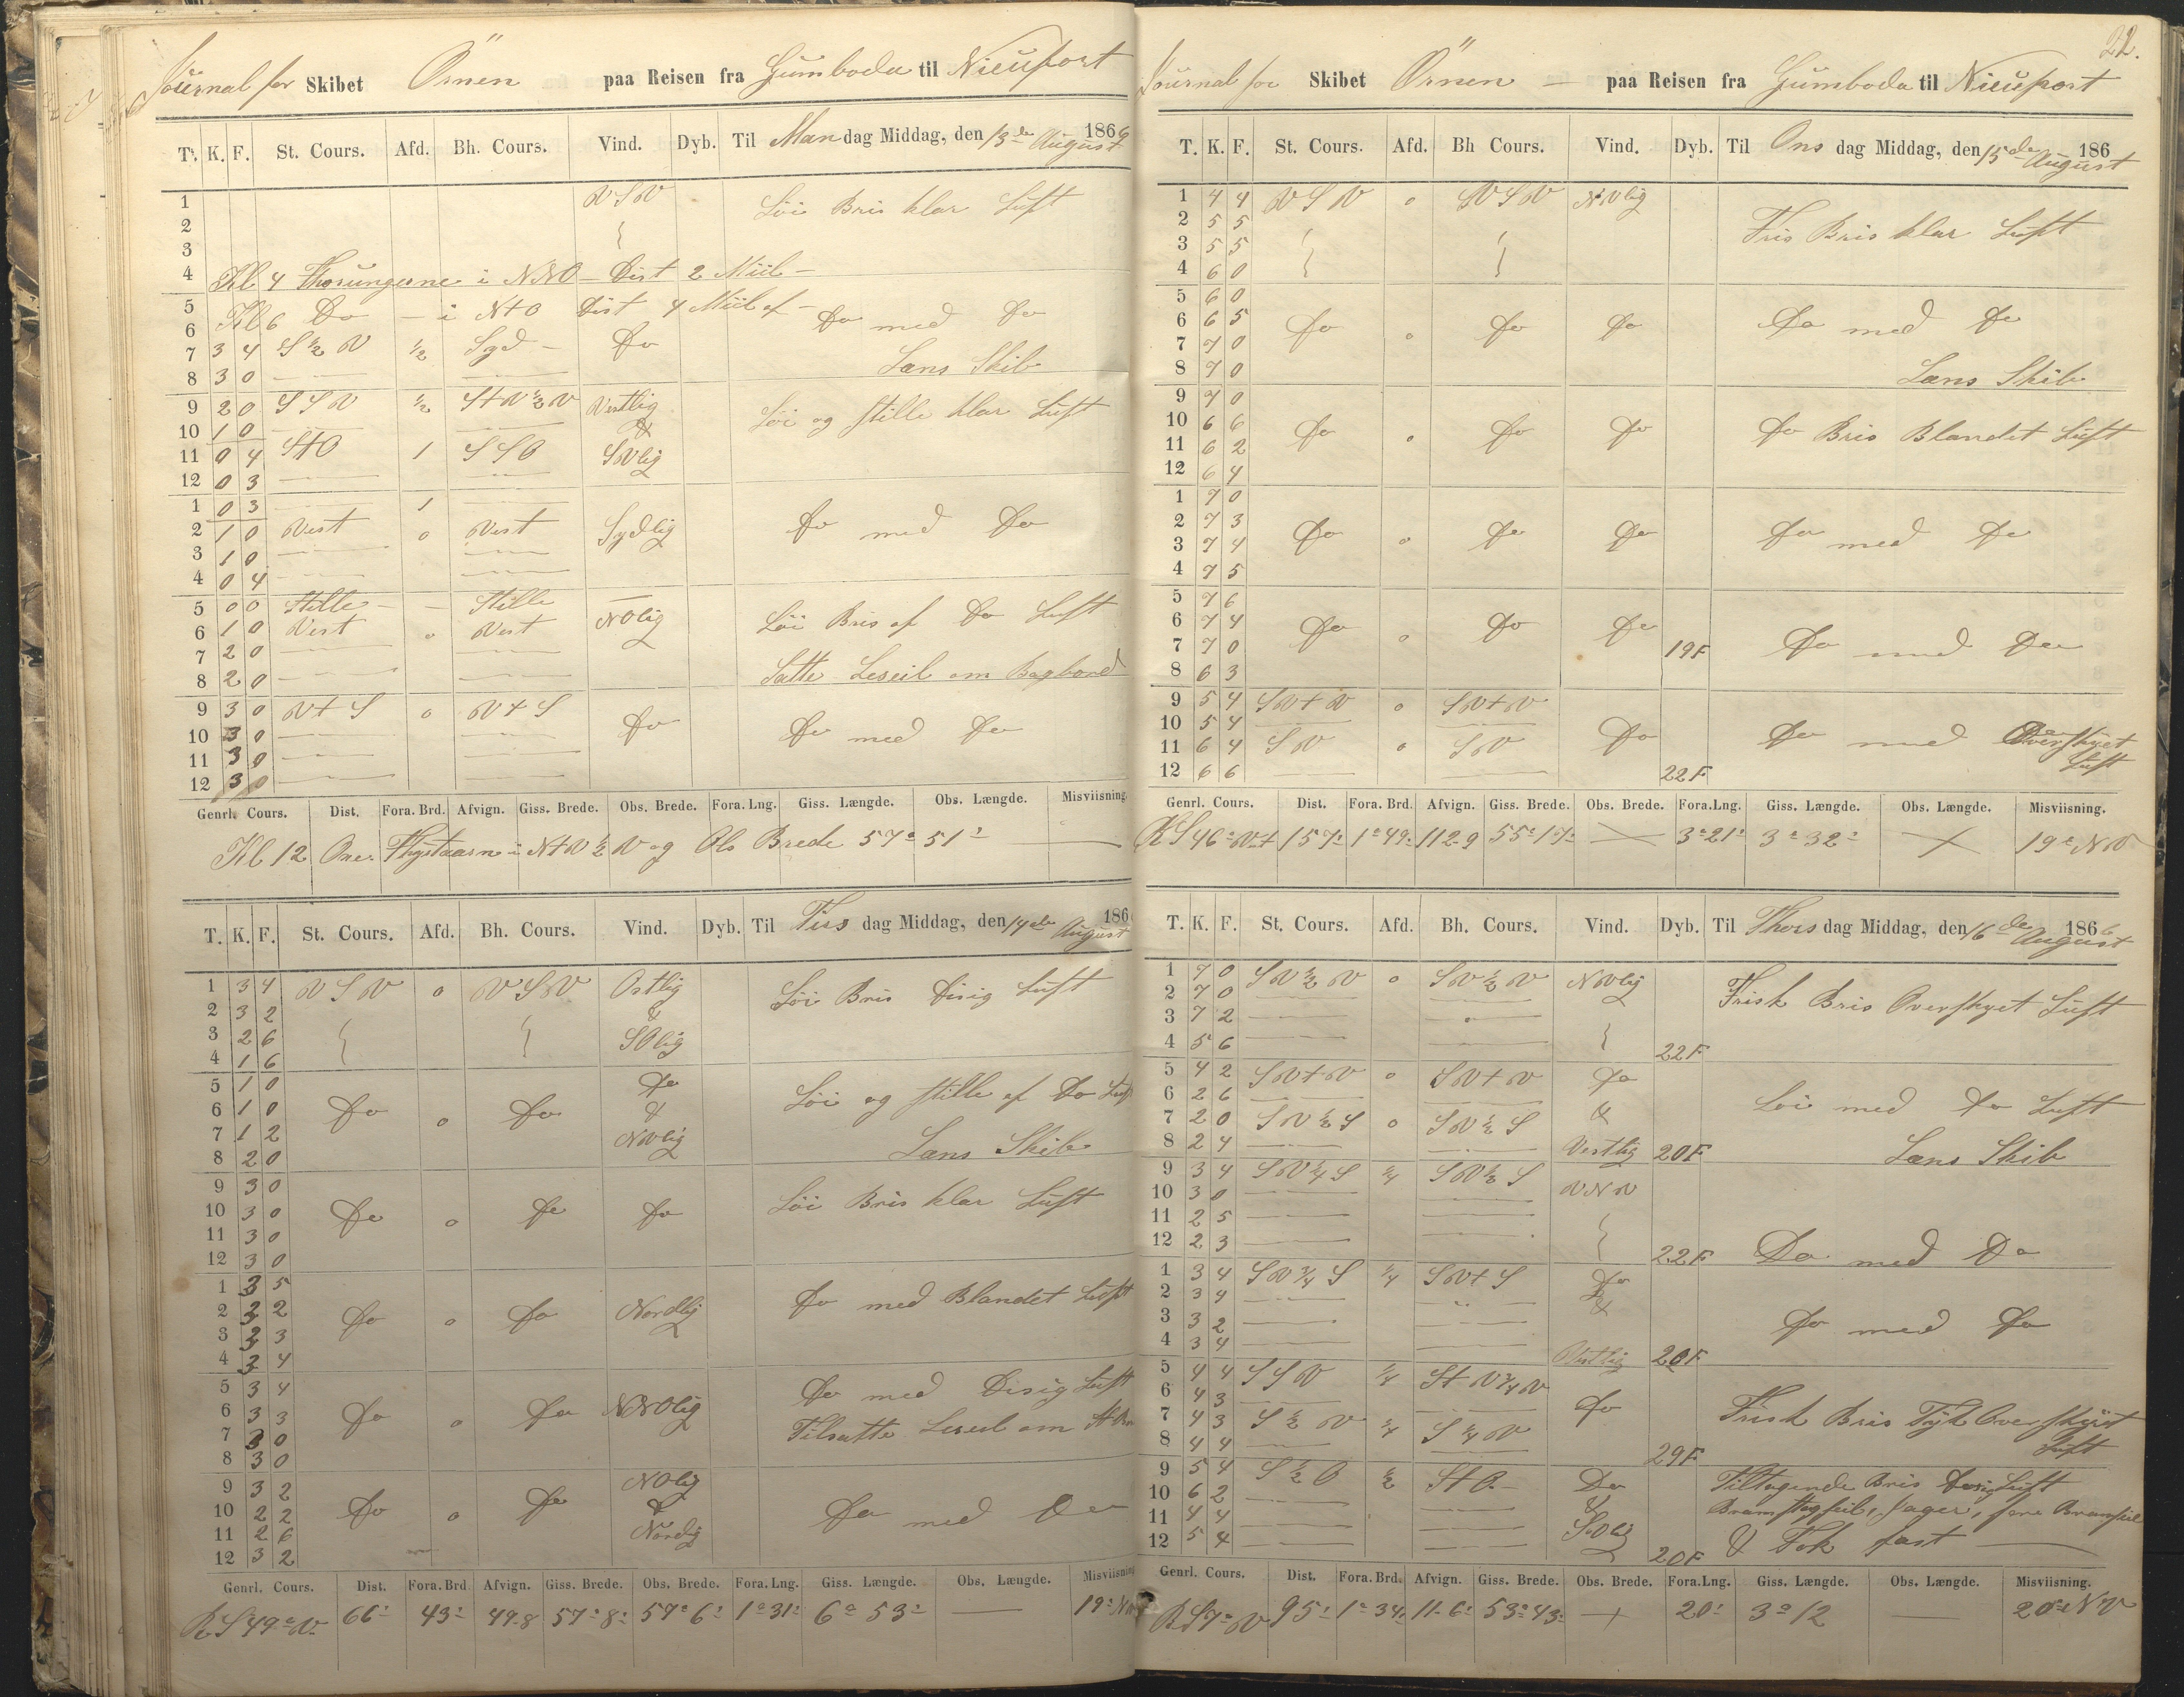 Journal for Skibet Örnen paa Reisen fra Gumboda til Nieuport
T. K. F. St. Cours. Afd. Bh. Cours. Vind. Dyb. Til Mandag Middag, den 13de August 1866
1 VSV Löi Bris klar Luft
2
3
4 Kl 4 Thorungerne i NNO – Dist 2 Miil –
5 Kl 6 Do – i NtO Dist 4 Miil af –
6 Do med Do
7 3 4 S ½ V ½ Syd – Do
8 3 0 Læns Skib
9 2 0 SSV ½ StV ½ V Vestlig Löi og stille klar Luft
10 1 0 &
11 0 4 StO 1 SSO SVlig
12 0 3
1 0 3 1
2 1 0 Vest 0 Vest Sydlig Do med Do
3 1 0
4 0 4
5 0 0 Stille – – Stille –
6 1 0 Vest 0 Vest NOlig Löi Bris af Do Luft
7 2 0
8 2 0 Satte Leseil om Bagbord
9 3 0 Vt S 0 Vt S
10 3 0 Do Do med Do
11 3 0
12 3 0
Genrl. Cours. Dist. Fora. Brd. Afvign. Giss. Brede. Obs. Brede. Fora. Lng. Giss. Længde. Obs. Længde. Misviisning.
Kl 12 i NtV ½ V og Obs Brede 57° 51'
T. K. F. St. Cours. Afd. Bh. Cours. Vind. Dyb. Til Tirsdag Middag, den 14de August 186
1 3 4 VSV 0 VSV Ostlig Löi Bris Disig Luft
2 3 2 &
3 2 6 SOlig
4 1 6
5 1 0 Do
6 1 0 Do 0 Do & Löi og stille af Do Luft
7 1 2 NVlig
8 2 0 Læns Skib
9 3 0
10 3 0 Do 0 Do Do Löi Bris klar Luft
11 3 0
12 3 0
1 3 5
2 3 2 Do 0 Do Nordlig Do med Blandet Luft
3 3 3
4 3 4
5 3 4 Do med Disig Luft
6 3 3 Do 0 Do NNOlig
7 3 0 Tilsatte Leseil om
8 3 0
9 3 2 NOlig
10 2 2 Do 0 Do & Do med Do
11 2 6 Nordlig
12 3 2
Genrl. Cours. Dist. Fora. Brd Afvign. Giss. Brede. Obs. Brede. Fora. Lng. Giss. Længde. Obs. Længde. Misviisning
R S 49° V 66' 43' 49-8 57° 8' 57° 6' 1° 31' 6° 53' — 19°
22.
Journal for Skibet Örnen – paa Reisen fra Gumboda til Nieuport
T. K. F. St. Cours. Afd. Bh Cours. Vind. Dyb. Til Onsdag Middag, den 15de August 186
1 4 4 VSV 0 VSV NVlig
2 5 5 Fris Bris klar Luft
3 5 5
4 6 0
5 6 0
6 6 5 Do 0 Do Do Do med Do
7 7 0
8 7 0 Læns Skib
9 7 0
10 6 6 Do 0 Do Do Do Bris Blandet Luft
11 6 2
12 6 4
1 7 0
2 7 3 Do 0 Do Do Do med Do
3 7 4
4 7 5
5 7 6
6 7 4 Do 0 Do Do
7 7 0 19F Do med Do
8 6 3
9 5 4 SVtV 0 SVtV
10 5 4 Do Do med Do
11 6 4 SV 0 SV Overskyet
12 6 6 22F Luft
Genrl. Cours. Dist. Fora. Brd. Afvign. Giss. Brede. Obs. Brede. Fora.Lng. Giss. Længde. Obs. Længde. Misviisning.
R S 46° V 157' 1° 49' 112-9 55° 17' 3° 21' 3° 32' 19° NV
T. K. F. St. Cours. Afd. Bh. Cours. Vind. Dyb. Til Thorsdag Middag, den 16de August 1866
1 7 0 SV ½ V 0 SV ½ V NVlig
2 7 0 Frisk Bris Overskyet Luft
3 7 2
4 5 6 22F
5 4 2 SVtV 0 SVtV Do
6 2 6 Löi med Do Luft
7 2 0 SV ½ S 0 SV ½ S &
8 2 4 Vestlig 20F Læns Skib
9 3 4 SV ¼ S ¼ SV ½ S
10 3 0 VNV
11 2 5
12 2 3 22F Do med Do
1 3 4 SV ¾ S ¼ SVt S Do
2 3 4 &
3 3 2 Do med Do
4 3 4 Vestlig 20F
5 4 4 SSV ¼ St V ¾ V
6 4 3 Do
7 4 3 S ½ V ¼ S ¼ V Frisk Bris Tyk Overskyet
8 4 4 29F Luft
9 5 4 S ½ O ½ St O – Do Tiltagende Bris Disig Luft
10 6 2 & Bramstagseil, Jager, fore Bramseil
11 4 4 SVlig
12 5 4 20F & Fok fast
Genrl. Cours. Dist. Fora. Brd. Afvign. Giss. Brede. Obs. Brede. Fora.Lng. Giss. Længde. Obs. Længde. Misviisning.
R S 7° V 95' 1° 34' 11-6' 53° 43' 20' 3° 12 — 20° NV